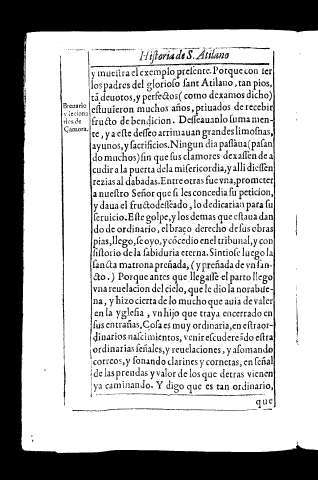 Historia de S. Atilano
y muestra el exemplo presente. Porque con ser
los padres del glorioso sant Atilano, tan pios,
tã deuotos, y perfectos (como dexamos dicho)
estuuieron muchos años, priuados de recebir
fructo de bendicion. Desseauanlo suma men-
te, y a este desseo arrimauan grandes limosnas,
ayunos, y sacrificios. Ningun dia passaua (passan
do muchos) sin que sus clamores dexassen de a
cudir a la puerta dela misericordia, y alli diessen
rezias al dabadas. Entre otras fue vna, prometer
a nuestro Señor que si les concedia su peticion,
y daua el fructo desseado, lo dedicarian para su
seruicio. Este golpe, y los demas que estaua dan
do de ordinario, el braço derecho de sus obras
pias, llego, se oyo, y cõcedio enel tribunal, y con
sistorio de la sabiduria eterna. Sintiose luego la
sancta matrona preñada, (y preñada de vn san-
cto.) Porque antes que llegasse el parto llego
vna reuelacion del cielo, que le dio la norabue-
na, y hizo cierta de lo mucho que auia de valer
en la yglesia, vn hijo que traya encerrado en
sus entrañas, Cosa es muy ordinaria, en estraor-
dinarios nascimientos, venir escudereãdo estra
ordinarias señales, y reuelaciones, y asomando
correos, y sonando clarines y cornetas, en señal
de las prendas y valor de los que detras vienen
ya caminando. Y digo que es tan ordinario,
que
Breuario
y lecions
rios de
Çamora.